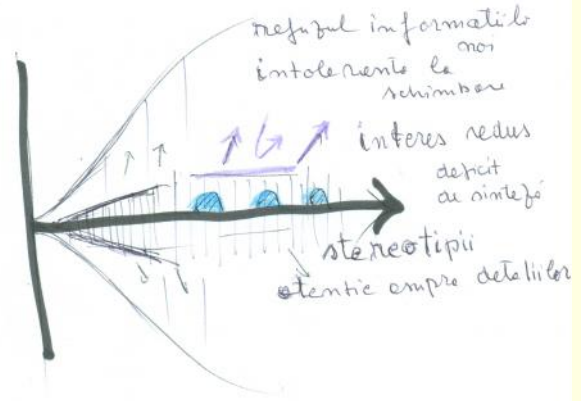 refuzul informatiilor
noi
intoleranta la
schimbare
interes redus
deficit
de sinteză
stereotipii
atentie asupra detaliilor